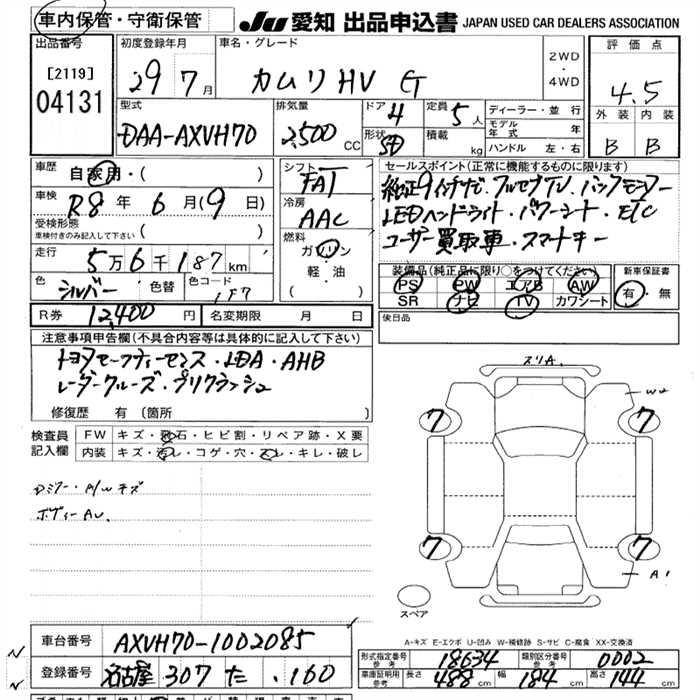 車内保管・守衛保管
JU 愛知 出品申込書 JAPAN USED CAR DEALERS ASSOCIATION
出品番号
[2119]
04131
初度登録年月
29年 7月
車名・グレード
カムリHV G
2WD
・
4WD
評価点
4.5
外装 内装
B B
型式
DAA-AXVH70
排気量
2,500 CC
ドア 4
形状 SD
定員 5人
積載 kg
ディーラー・並行
モデル年式 年
ハンドル 左・右
車歴 自家用・( )
車検 R8年 6月(9日)
受検形態
車検付きのみ記入して下さい ( )
走行 5万6千187km
色 シルバー 色替 色コード 1F7
シフト
FAT
冷房
AAC
燃料
ガソリン
軽・油
( )
セールスポイント(正常に機能するものに限ります)
純正9インチナビ・フルセグTV・バックモニター
LEDヘッドライト・パワーシート・ETC
ユーザー買取車・スマートキー
装備品(純正品に限り○をつけてください)
PS PW エアB AW
SR ナビ TV カワシート
新車保証書
有・無
R券 12,400円 名変期限 月 日
後日品
注意事項申告欄(不具合内容等は具体的に記入して下さい)
トヨタセーフティーセンス・LDA・AHB
レーダークルーズ・プリクラッシュ
修復歴 有 (箇所 )
検査員
記入欄
FW キズ・飛石・ヒビ割・リペア跡・X要
内装 キズ・汚レ・コゲ・穴・スレ・キレ・破レ
Dミラー・A/Wキズ
ボディーAU.
スリA.
W2
7 7
7 7
A1
スペア
A-キズ E-エクボ U-凹み W-補修跡 S-サビ C-腐食 XX-交換済
車台番号 AXVH70-1002085
登録番号 名古屋 307 た ・160
形式指定番号 参考 18634
類別区分番号 参考 0002
車庫証明用 参考 長さ 488cm 幅 184cm 高さ 144cm